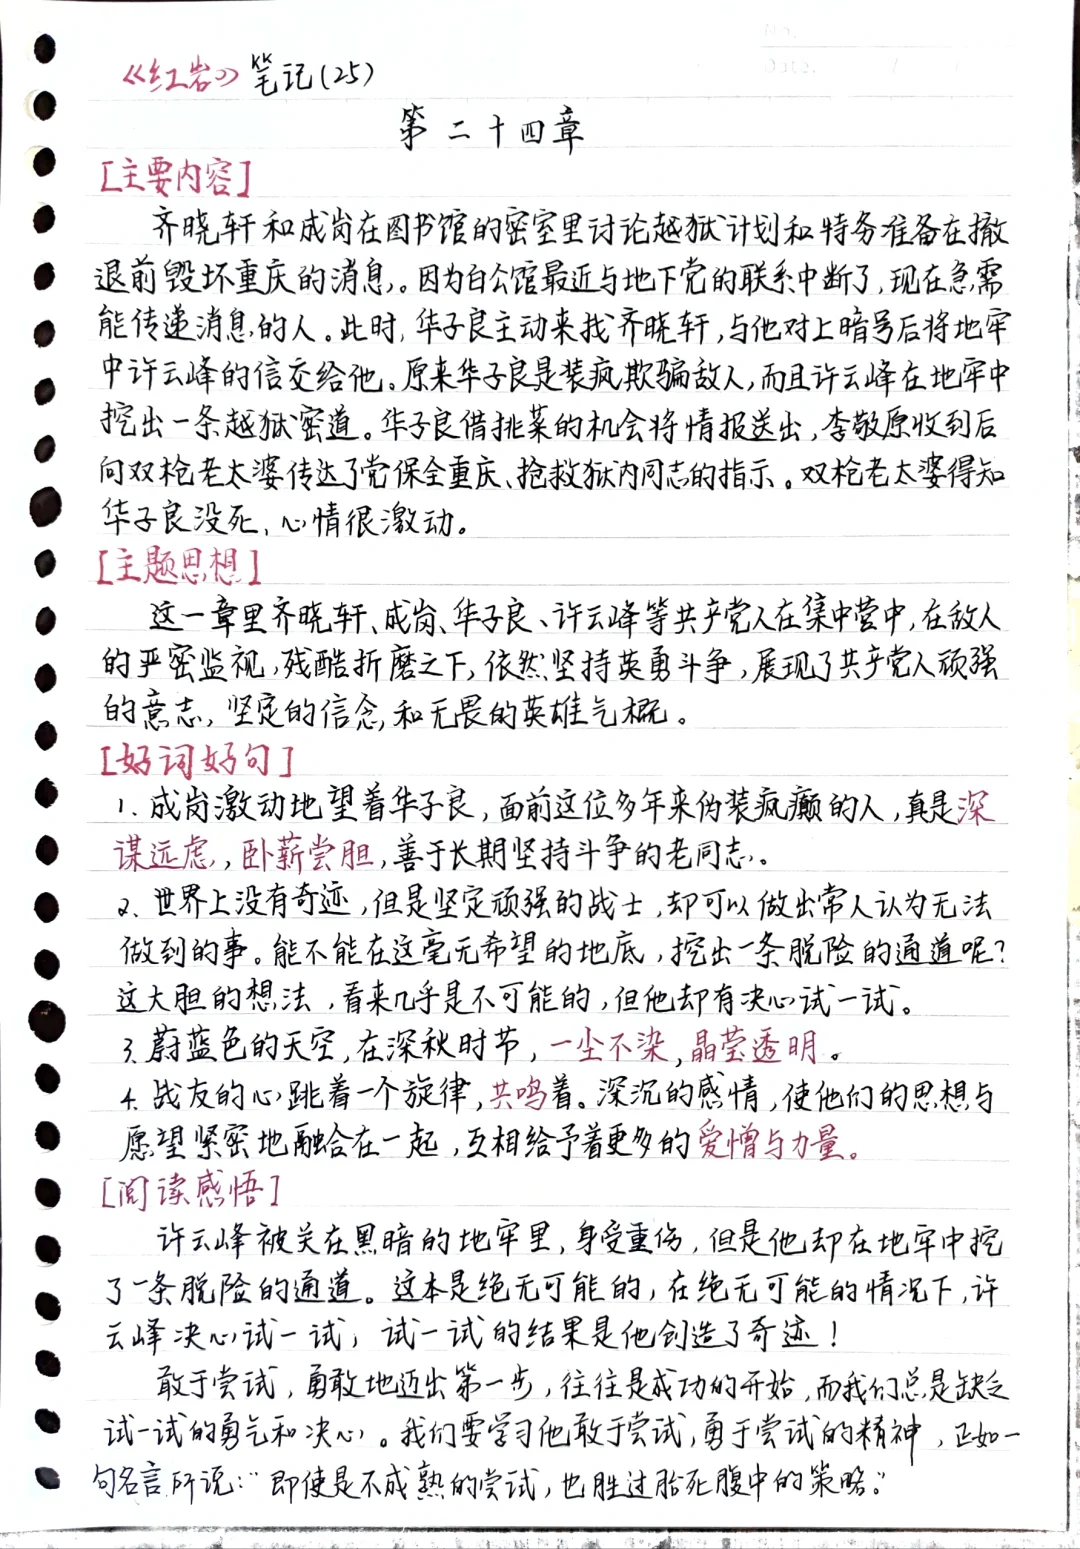 No.
Date. ( )
《红岩》笔记(25)
第二十四章
[主要内容]
齐晓轩和成岗在图书馆的密室里讨论越狱计划和特务准备在撤
退前毁坏重庆的消息。因为白公馆最近与地下党的联系中断了,现在急需
能传递消息的人。此时,华子良主动来找齐晓轩,与他对上暗号后将地牢
中许云峰的信交给他。原来华子良是装疯欺骗敌人,而且许云峰在地牢中
挖出一条越狱密道。华子良借挑菜的机会将情报送出,李敬原收到后
向双枪老太婆传达了党保全重庆、抢救狱内同志的指示。双枪老太婆得知
华子良没死、心情很激动。
[主题思想]
这一章里齐晓轩、成岗、华子良、许云峰等共产党人在集中营中,在敌人
的严密监视,残酷折磨之下,依然坚持英勇斗争,展现了共产党人顽强
的意志,坚定的信念和无畏的英雄气概。
[好词好句]
1.成岗激动地望着华子良,面前这位多年来伪装疯癫的人,真是深
谋远虑,卧薪尝胆,善于长期坚持斗争的老同志。
2、世界上没有奇迹,但是坚定顽强的战士,却可以做出常人认为无法
做到的事。能不能在这毫无希望的地底,挖出一条脱险的通道呢?
这大胆的想法,看来几乎是不可能的,但他却有决心试一试。
3.蔚蓝色的天空,在深秋时节,一尘不染,晶莹透明。
4.战友的心跳着一个旋律,共鸣着。深沉的感情,使他们的思想与
愿望紧密地融合在一起,互相给予着更多的爱憎与力量。
[阅读感悟]
许云峰被关在黑暗的地牢里,身受重伤,但是他却在地牢中挖
了一条脱险的通道。这本是绝无可能的,在绝无可能的情况下,许
云峰决心试一试,试一试的结果是他创造了奇迹!
敢于尝试,勇敢地迈出第一步,往往是成功的开始,而我们总是缺乏
试一试的勇气和决心。我们要学习他敢于尝试,勇于尝试的精神,正如一
句名言所说:“即使是不成熟的尝试,也胜过胎死腹中的策略。”